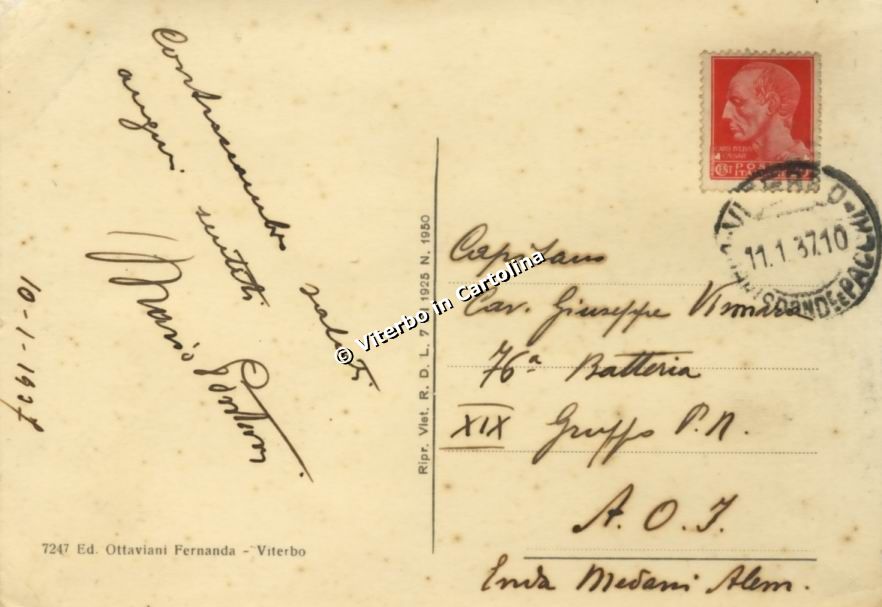 Contraccambio saluti
auguri sentiti
Mario
10-1-1937
7247 Ed. Ottaviani Fernanda - Viterbo
Ripr. Viet. R. D. L. 7 1925 N. 1950
© Viterbo in Cartolina
POSTE
ITALIANE
VITERBO
11.1.37.10
CORRISPONDENZE PACCHI
Capitano
Cav. Giuseppe
76ª Batteria
XIX Gruppo P. N.
A. O. I.
Enda Medani Alem.